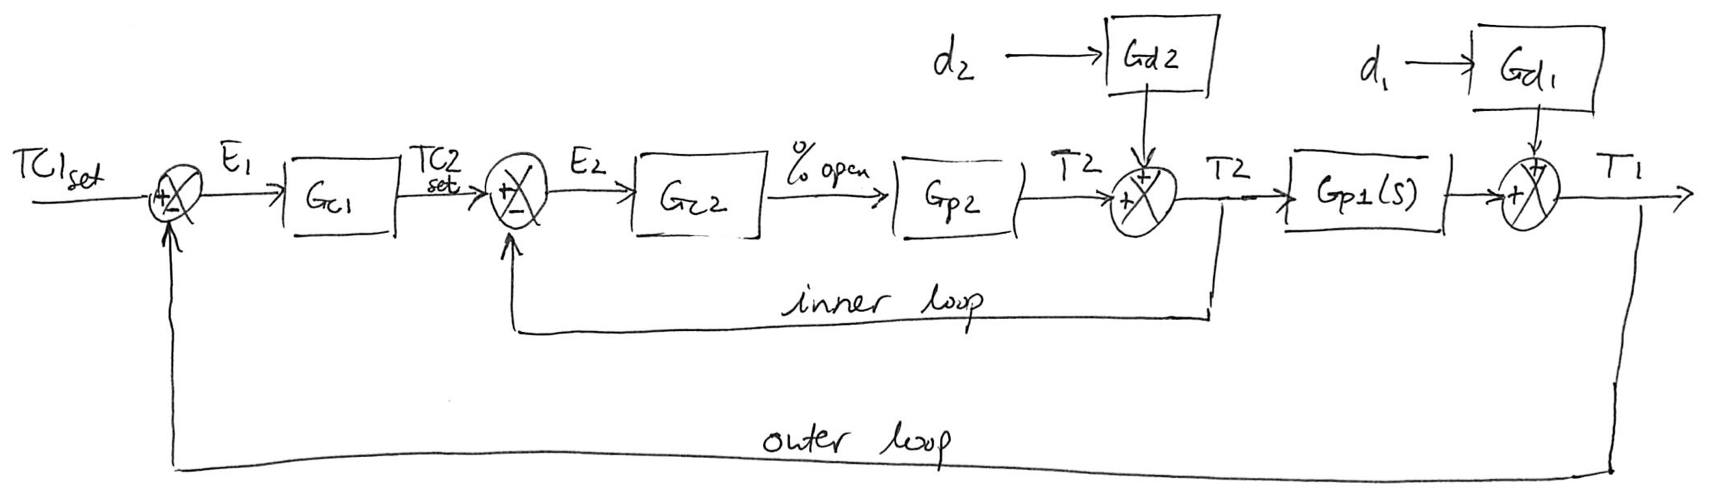 d2
Gd2
d1
Gd1
TC1set
E1
Gc1
TC2
set
E2
Gc2
% open
Gp2
T2
T2
Gp1(s)
T1
+
-
+
-
+
+
+
+
inner loop
outer loop